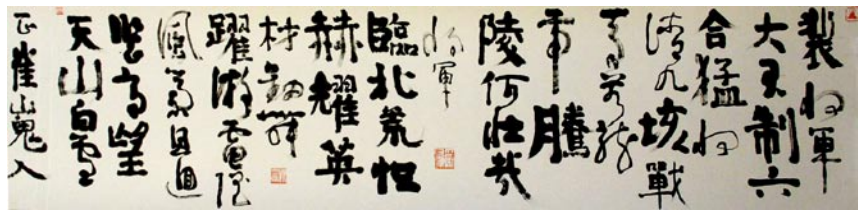 裴将軍
大君制六
合猛将
清九垓戰
馬若龍
虎騰
陵何壯哉
将軍
臨北荒恒
赫耀英
材劍舞
躍游電随
風縈且迴
登高望
天山白雪
正崔嵬入